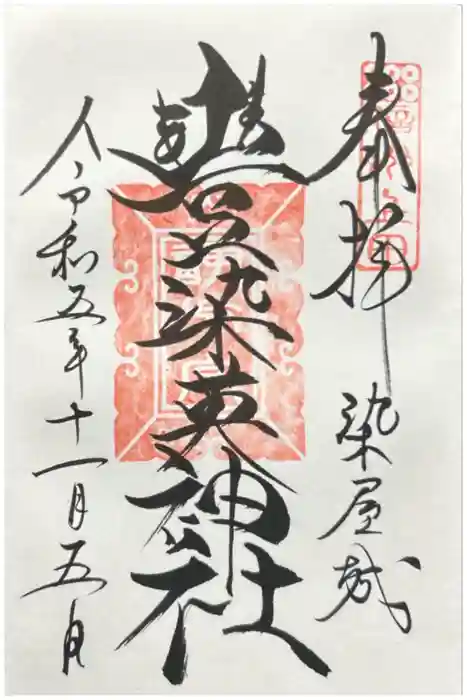 奉拝
染屋城
豊染英神社
令和五年十一月五日